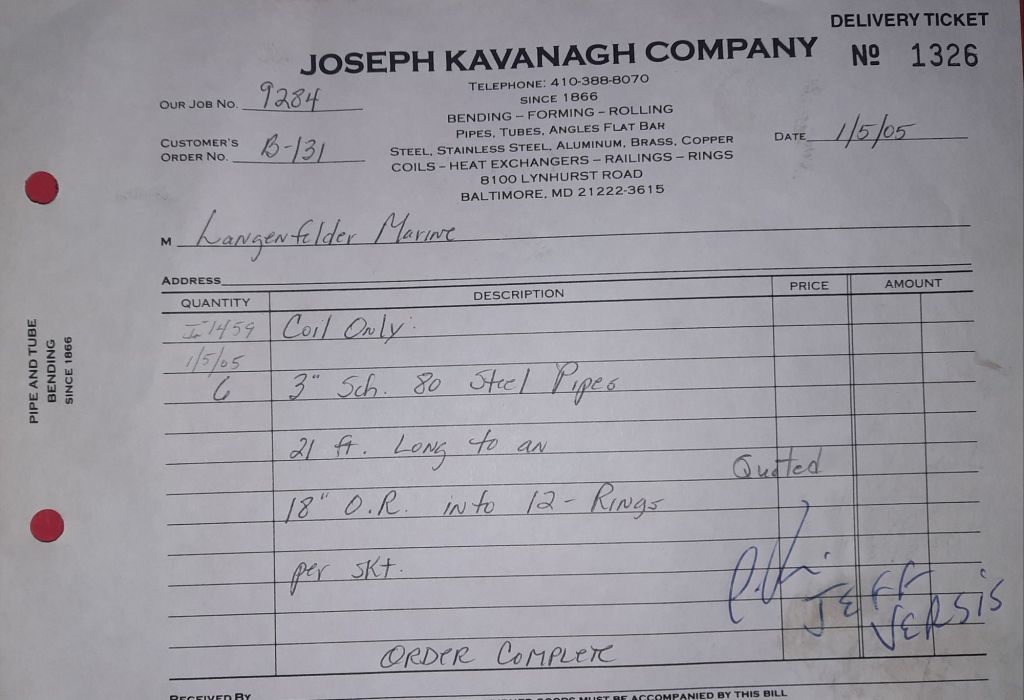 DELIVERY TICKET
JOSEPH KAVANAGH COMPANY
Nº 1326
TELEPHONE: 410-388-8070
SINCE 1866
BENDING – FORMING – ROLLING
PIPES, TUBES, ANGLES FLAT BAR
STEEL, STAINLESS STEEL, ALUMINUM, BRASS, COPPER
COILS – HEAT EXCHANGERS – RAILINGS – RINGS
8100 LYNHURST ROAD
BALTIMORE, MD 21222-3615
OUR JOB NO. 9284
CUSTOMER'S
ORDER NO. B-131
DATE 1/5/05
M Langenfelder Marine
ADDRESS
QUANTITY DESCRIPTION PRICE AMOUNT
1459 Coil Only
1/5/05
6 3" Sch. 80 Steel Pipes
21 ft. Long to an
Quoted
18" O.R. into 12-Rings
per skt.
JEFF
VERSIS
ORDER COMPLETE
RECEIVED BY
GOODS MUST BE ACCOMPANIED BY THIS BILL
PIPE AND TUBE
BENDING
SINCE 1866